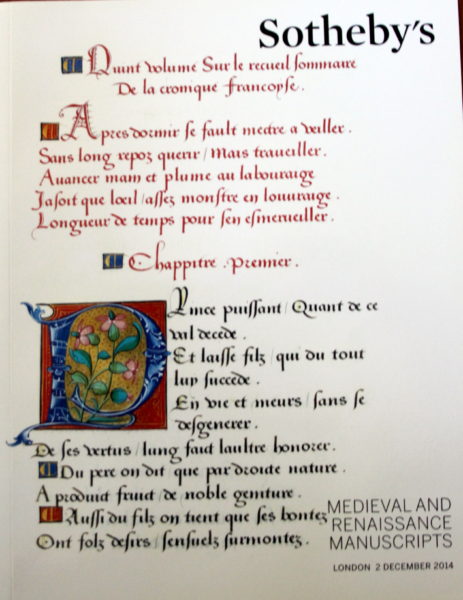 Sotheby's
Quint volume Sur le recueil sommaire
De la cronique francoyse.
Apres dormir se fault mectre a veiller.
Sans long repoz querir / Mais traueiller.
Auancer main et plume au labourage
Jasoit que loeil / assez monstre en louurage.
Longueur de temps pour sen esmerueiller.
Chappitre. Premier.
Prince puissant / Quant de ce
val decede.
Et laisse filz / qui du tout
luy succede.
En vie et meurs / sans se
desgenerer.
De ses vertus / lung fault laultre honorer.
Du pere on dit que par droite nature.
A produit fruict / de noble geniture.
Aussi du filz on tient que ses bontez
Ont folz desirs / sensuelz surmontez.
MEDIEVAL AND
RENAISSANCE
MANUSCRIPTS
LONDON 2 DECEMBER 2014